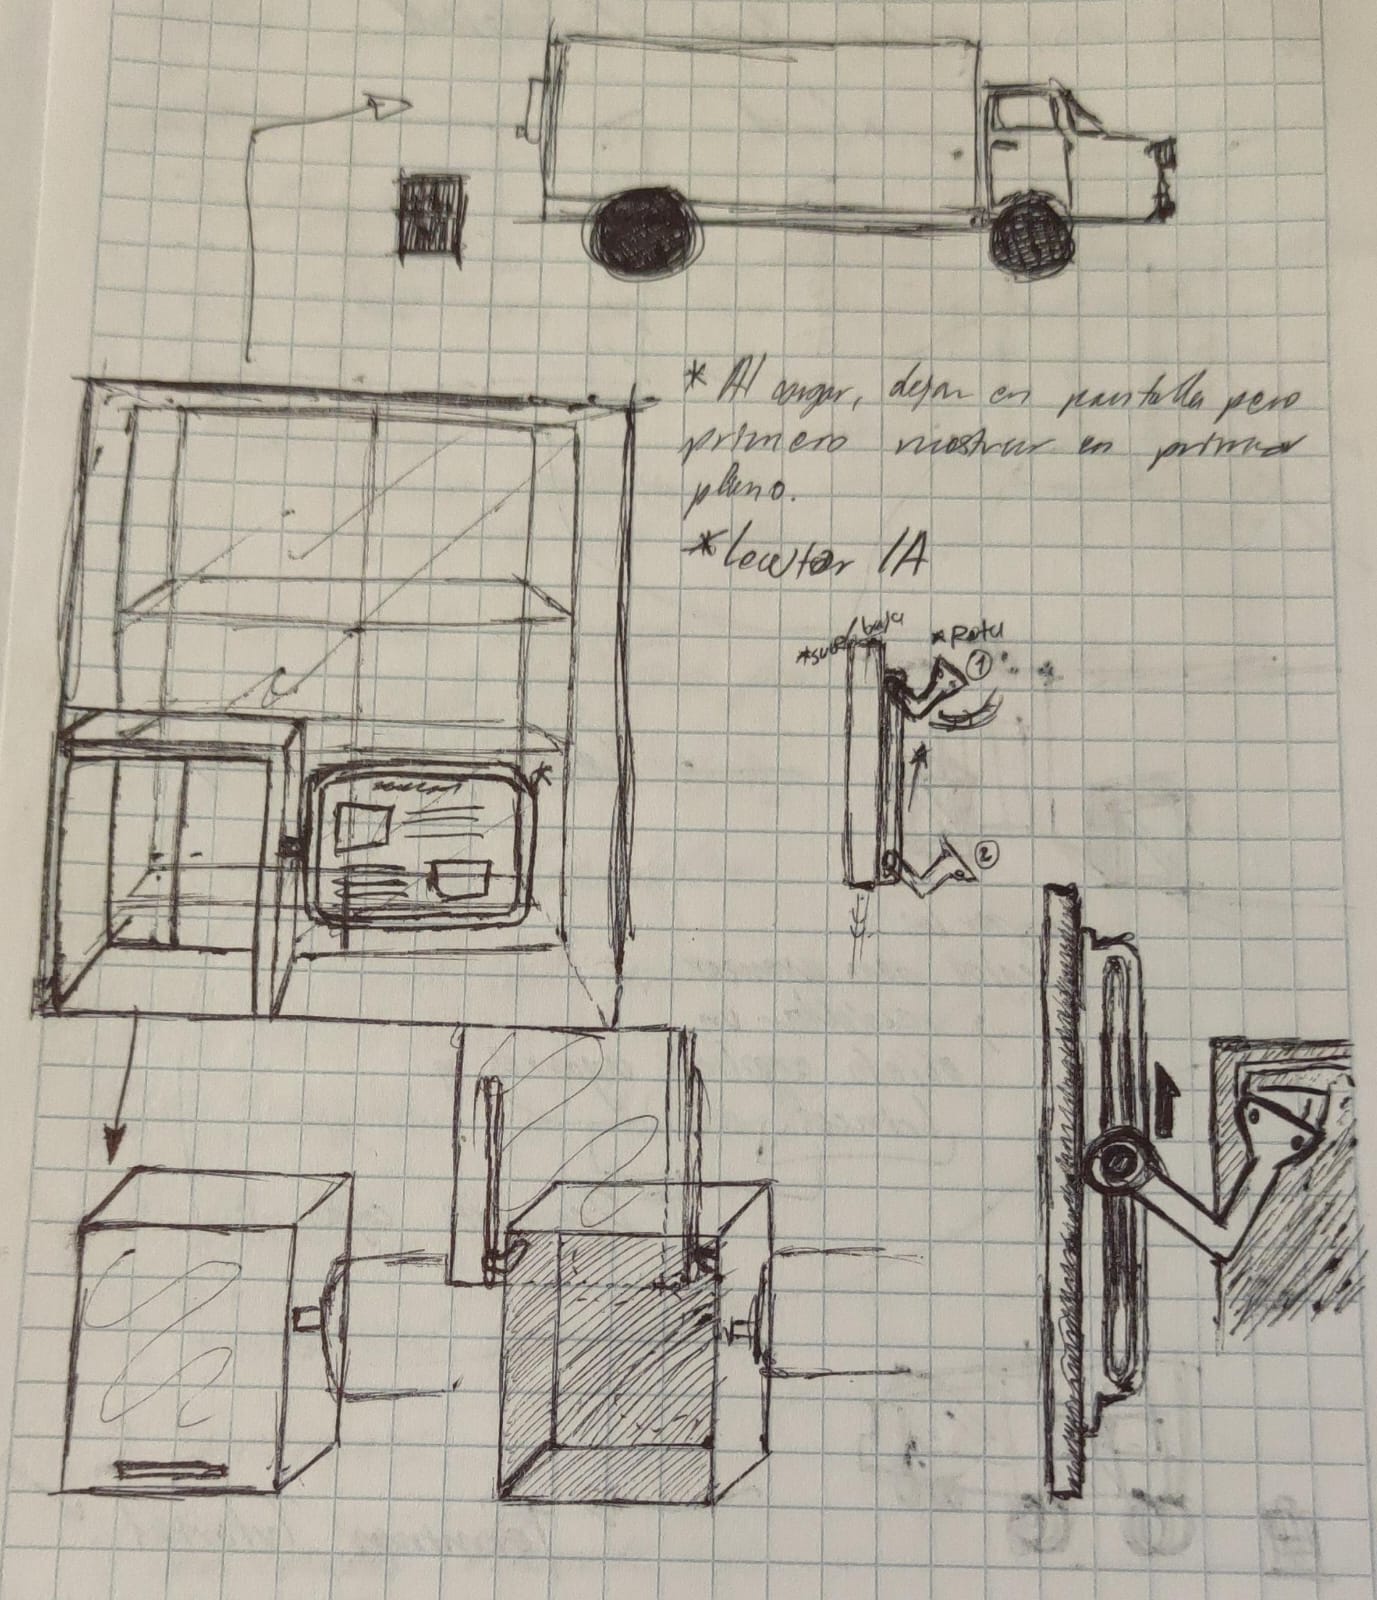 * Al cargar, dejar en pantalla pero
primero mostrar en primer
plano.
* lector IA
* sube/baja
* Rota
1
*
2
*